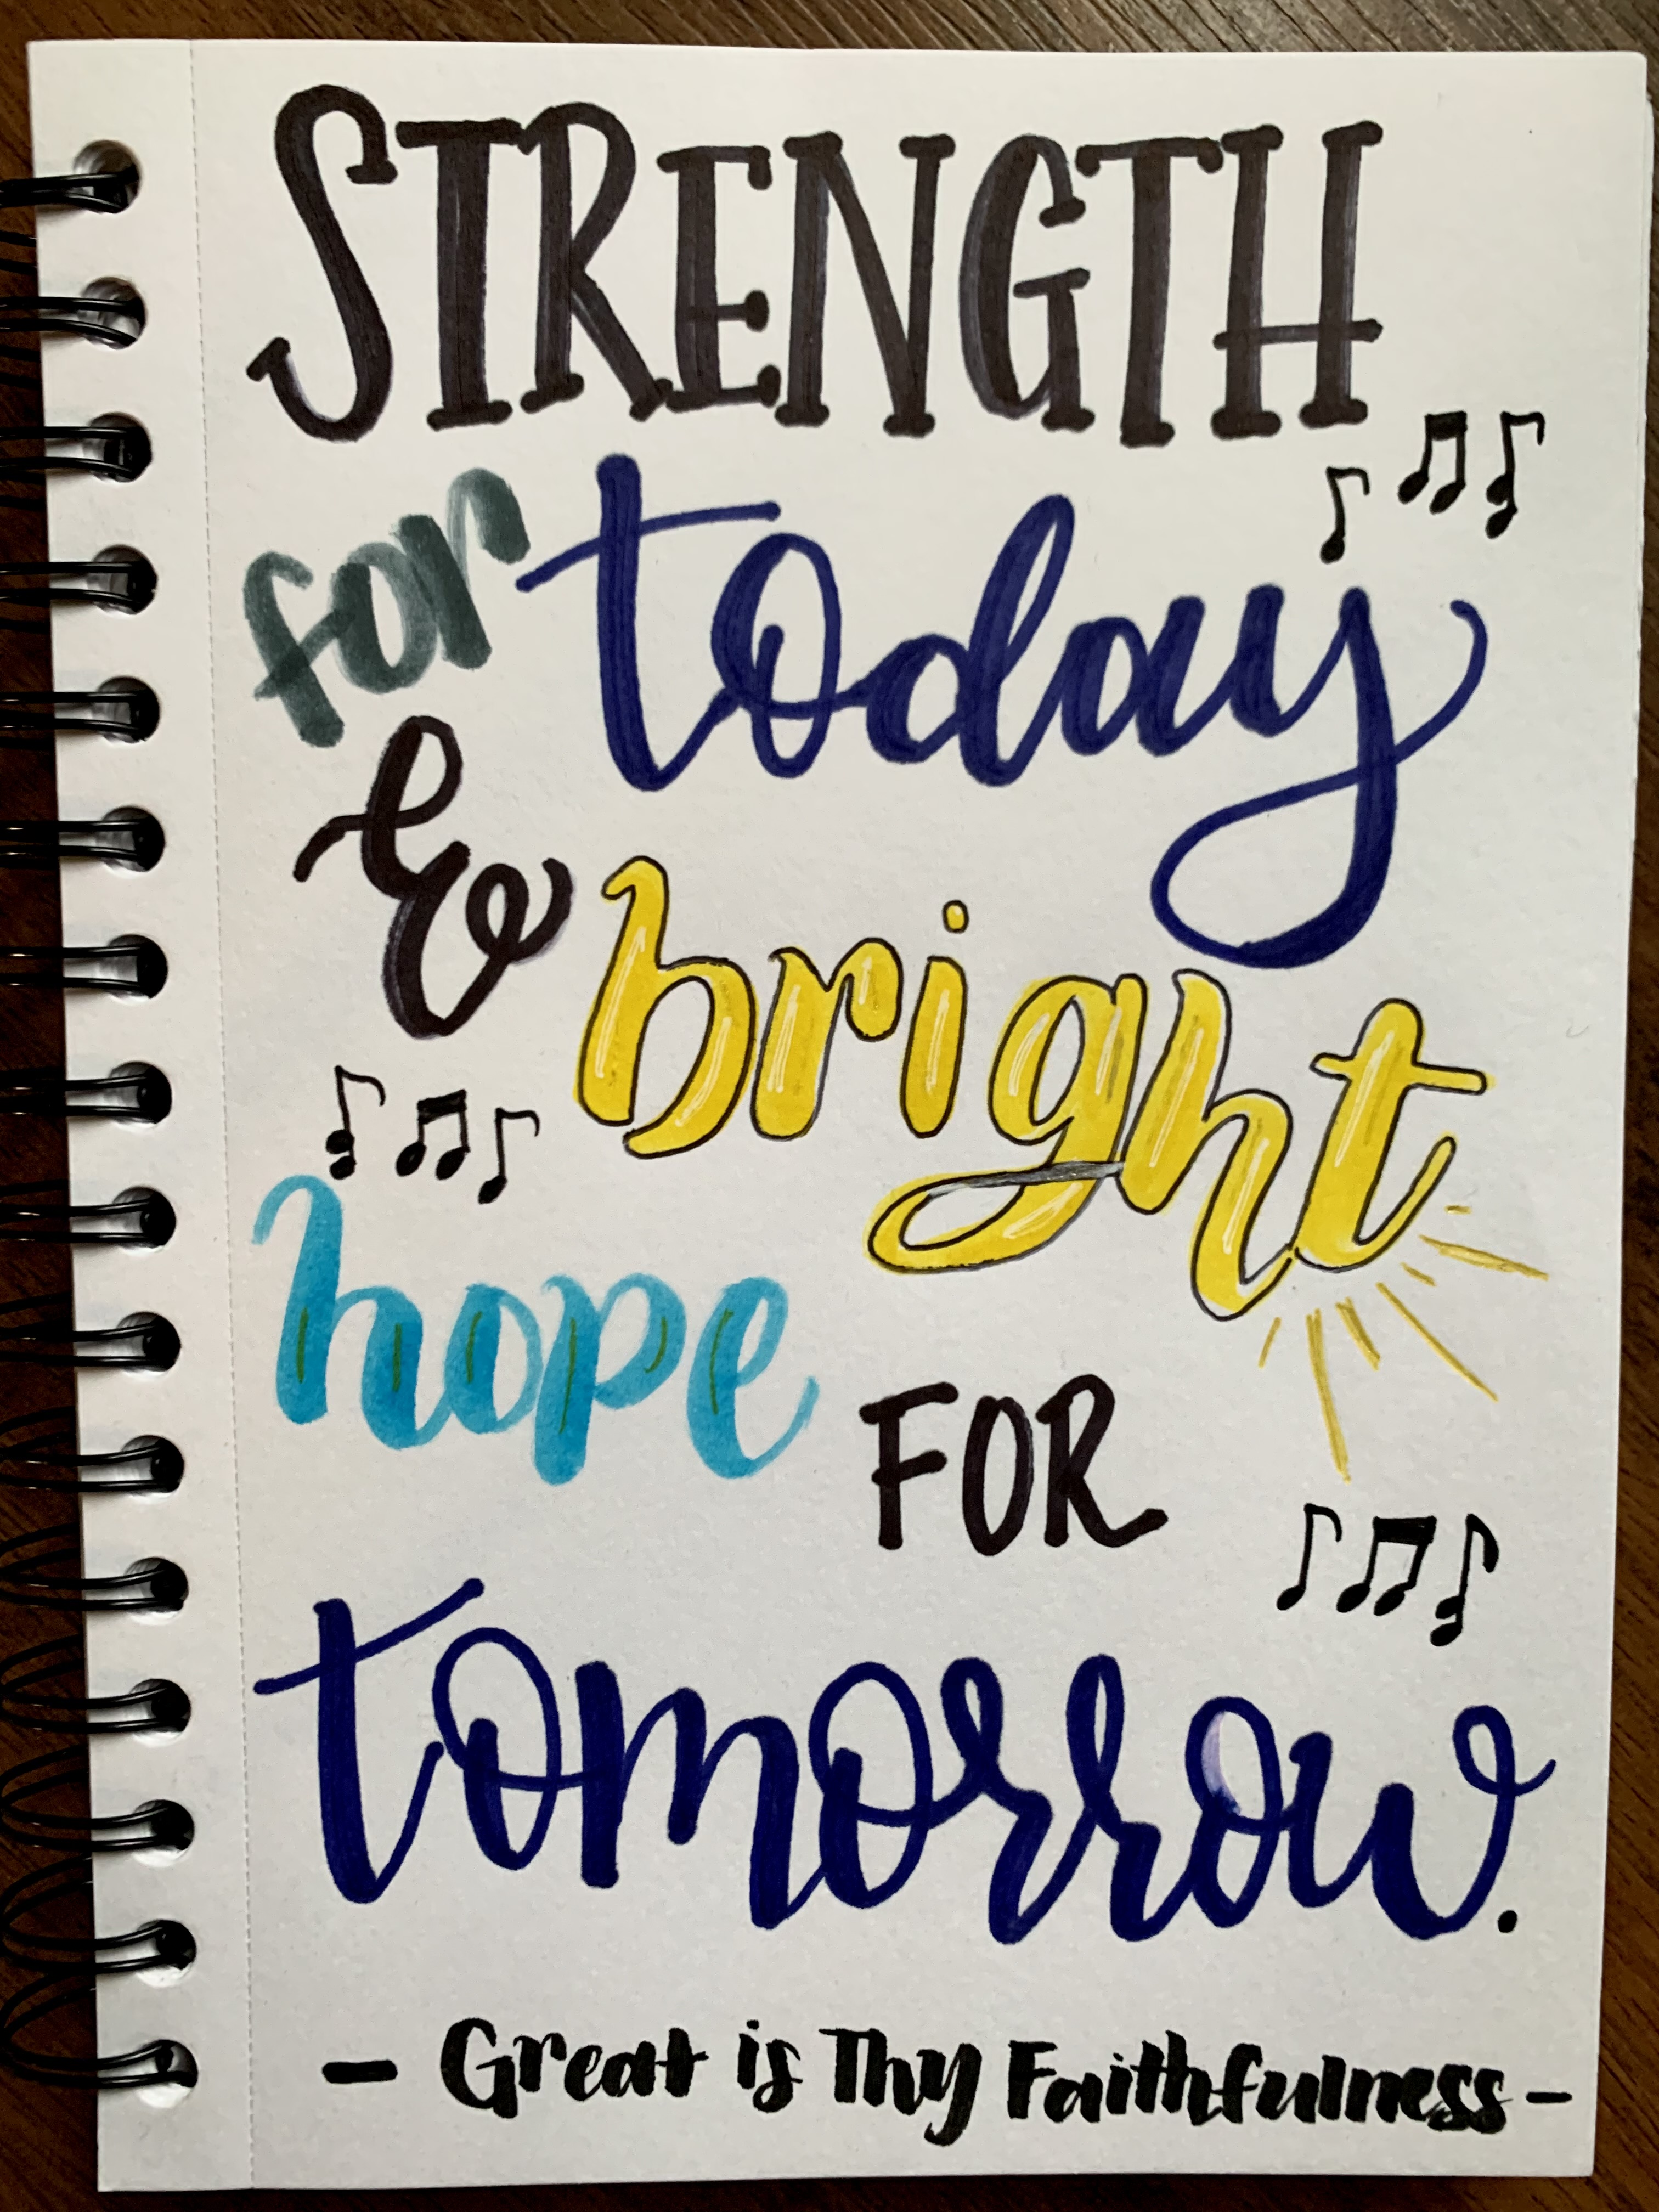 STRENGTH
for today
& bright
hope FOR
tomorrow.
- Great is Thy Faithfulness -